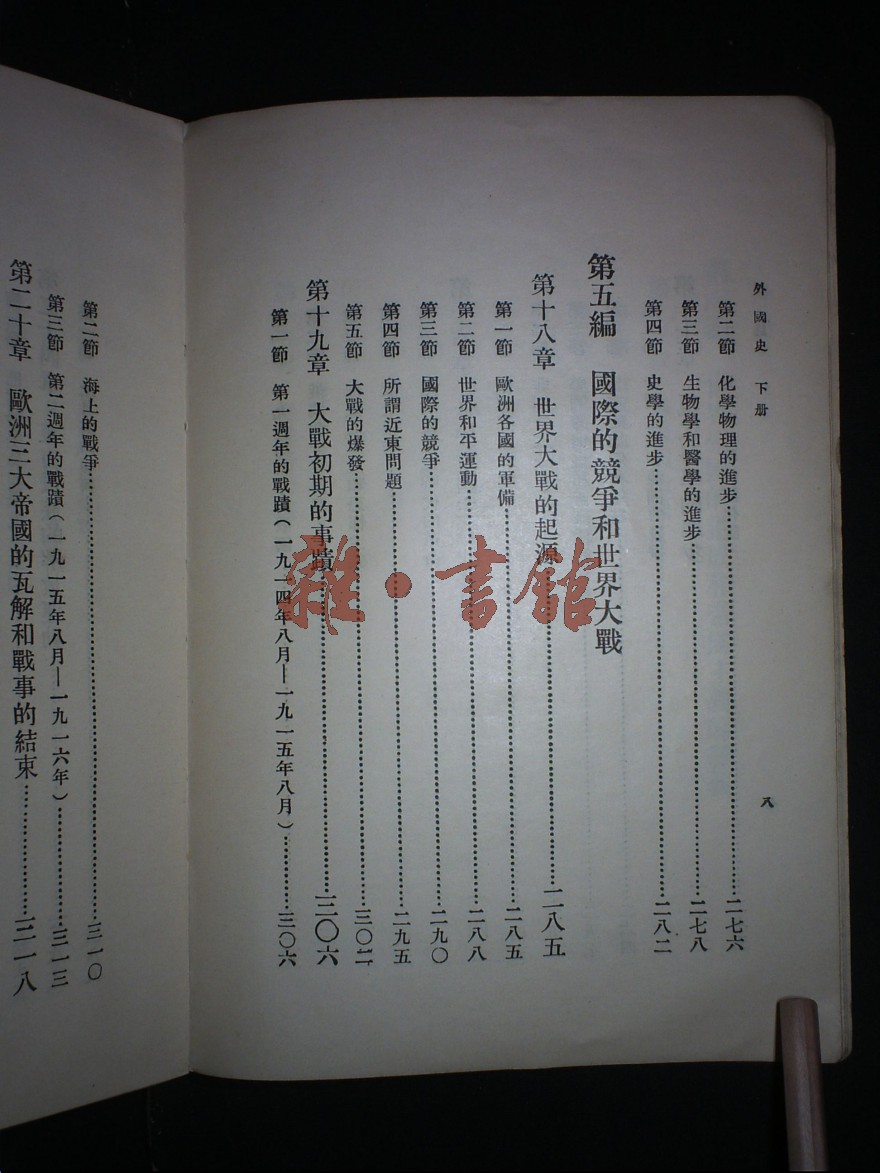 外國史 下册
第二節 化學物理的進步……二七六
第三節 生物學和醫學的進步……二七八
第四節 史學的進步……二八二
第五編 國際的競爭和世界大戰
第十八章 世界大戰的起源……二八五
第一節 歐洲各國的軍備……二八五
第二節 世界和平運動……二八八
第三節 國際的競爭……二九〇
第四節 所謂近東問題……二九五
第五節 大戰的爆發……三〇二
第十九章 大戰初期的事蹟……三〇六
第一節 第一週年的戰蹟(一九一四年八月—一九一五年八月)……三〇六
八
第二節 海上的戰爭……三一〇
第三節 第二週年的戰蹟(一九一五年八月—一九一六年)……三一三
第二十章 歐洲三大帝國的瓦解和戰事的結束……三一八
雜·書館